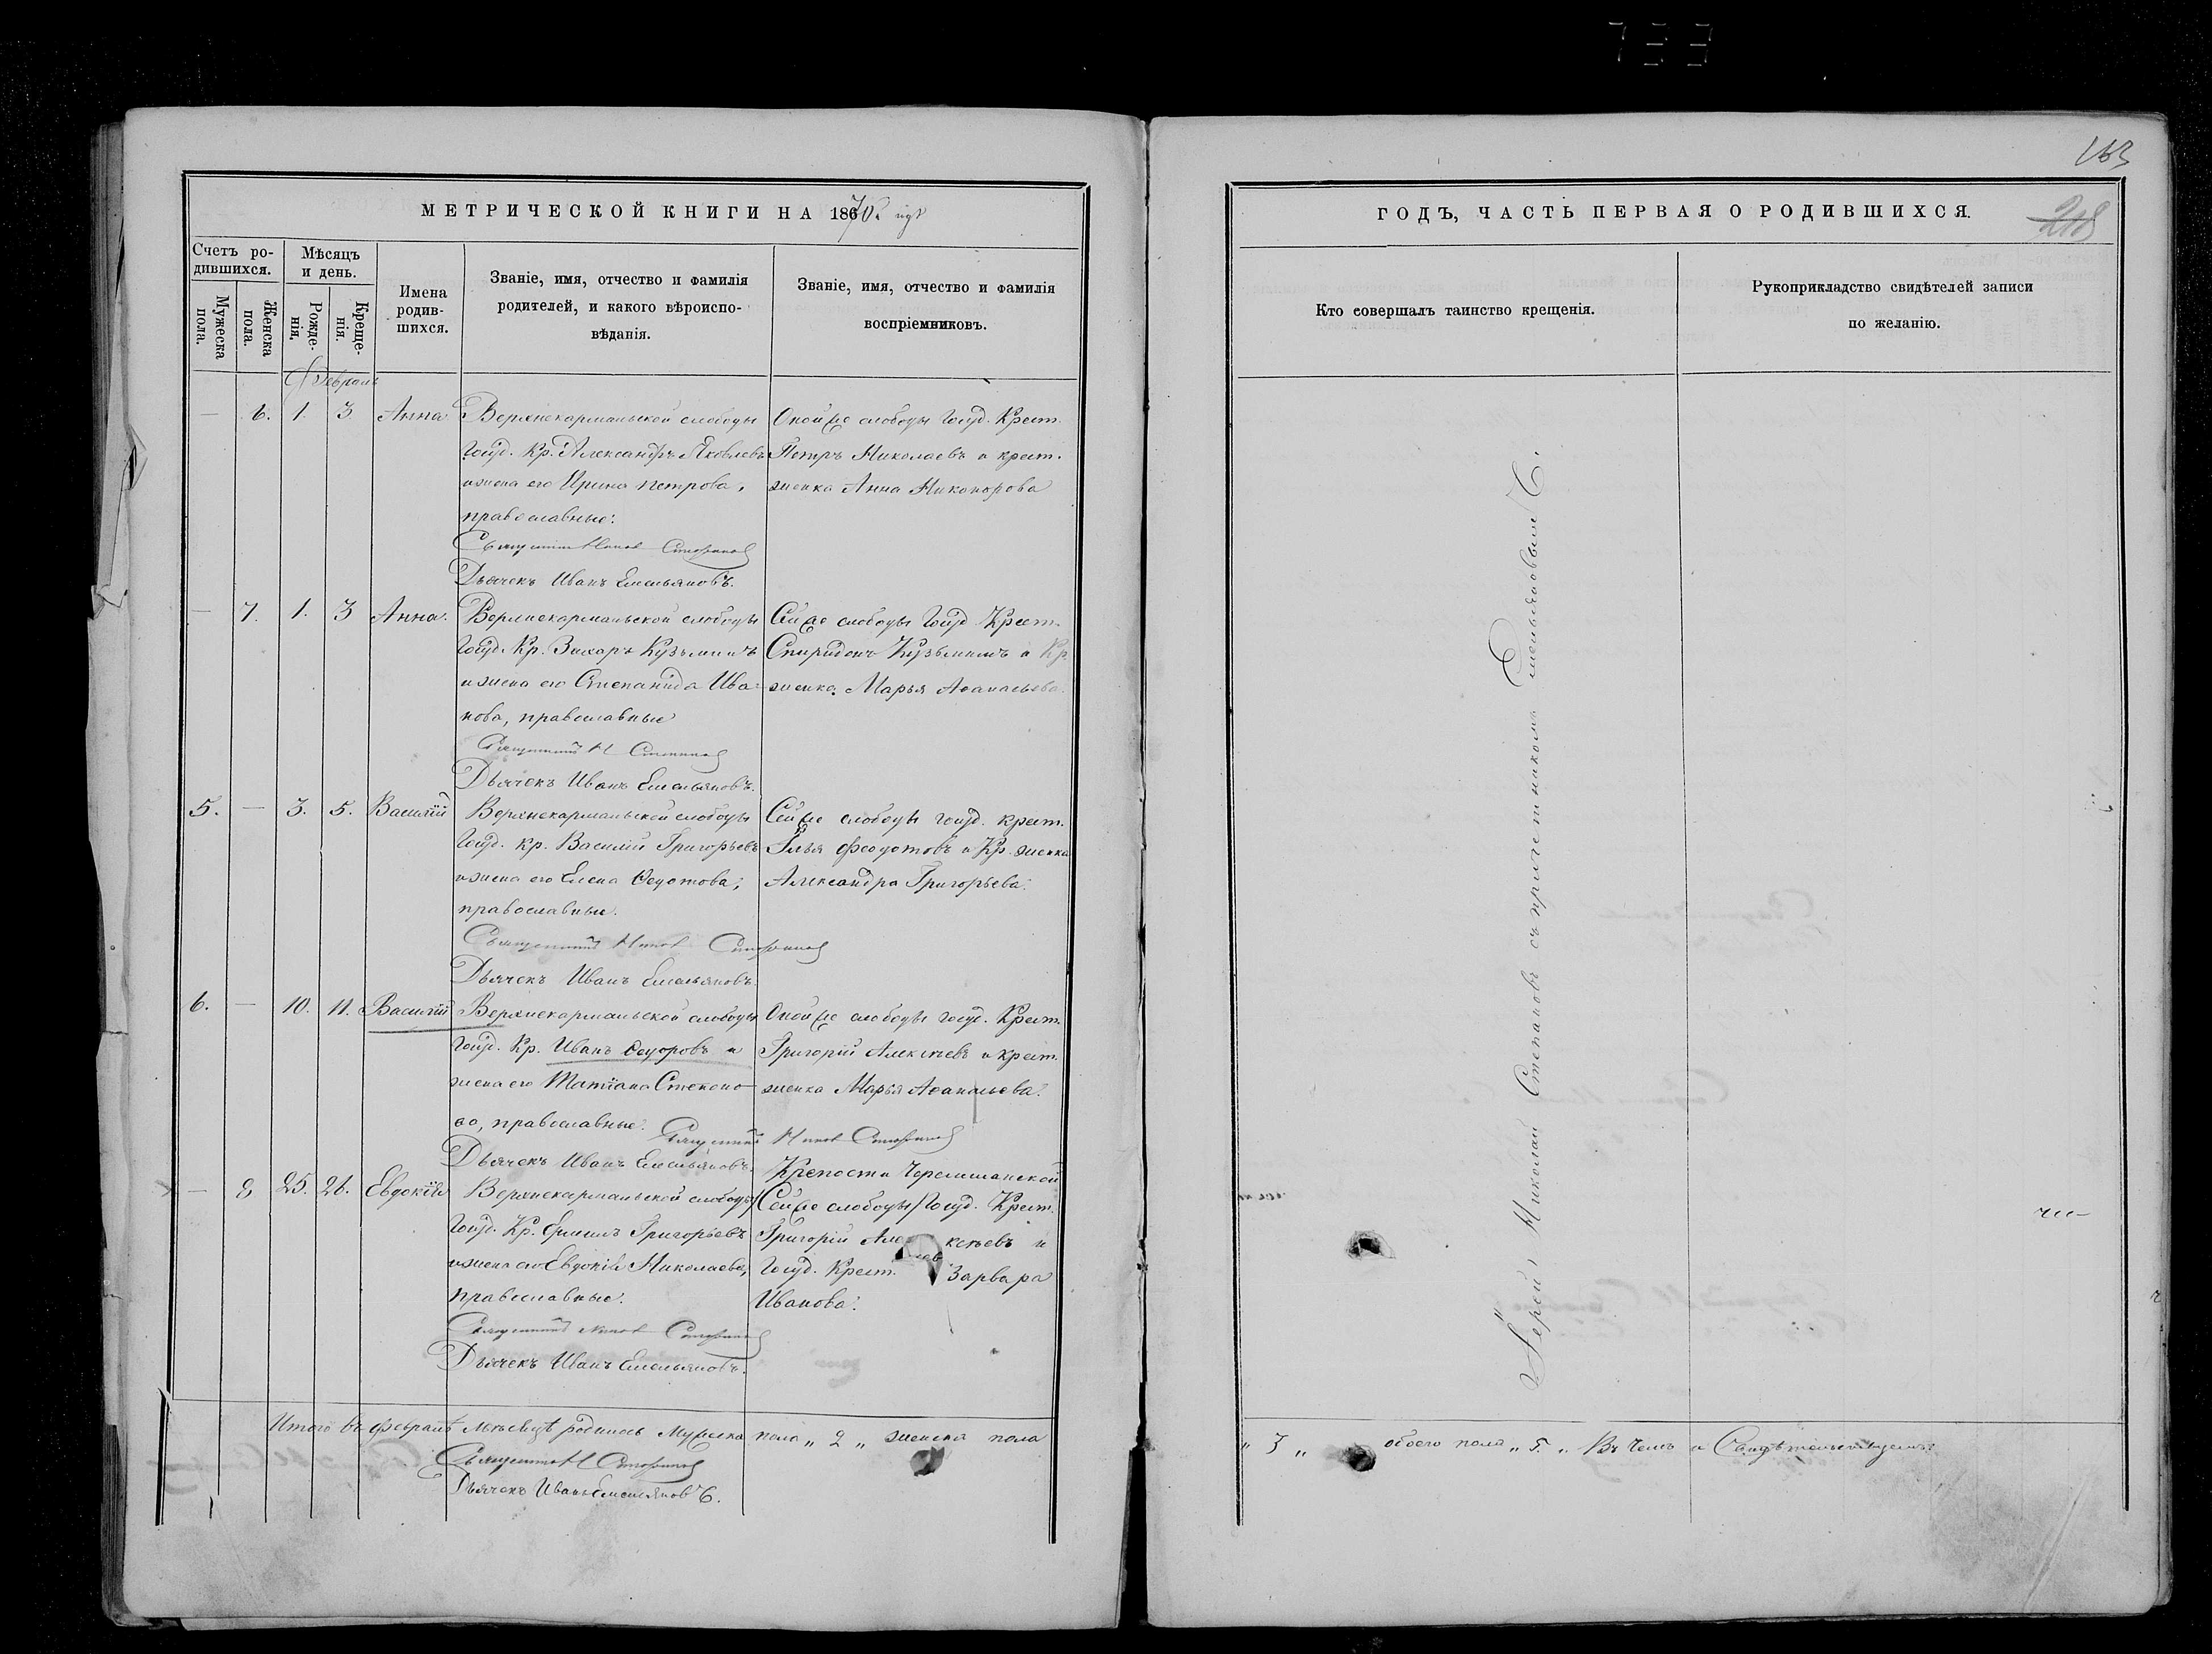 163
МЕТРИЧЕСКОЙ КНИГИ НА 1870й годъ
ГОДЪ, ЧАСТЬ ПЕРВАЯ О РОДИВШИХСЯ.
218
Счетъ ро-
дившихся.
Мужеска
пола.
Женска
пола.
Мѣсяцъ
и день.
Рожде-
нія.
Креще-
нія.
Имена
родив-
шихся.
Званіе, имя, отчество и фамилія
родителей, и какого вѣроиспо-
вѣданія.
Званіе, имя, отчество и фамилія
воспріемниковъ.
Кто совершалъ таинство крещенія.
Рукоприкладство свидѣтелей записи
по желанію.
Февраль
— 6. 1. 3 Анна
Верхнекармальской слободы
Госуд. Кр. Александръ Яковлевъ
и жена его Ирина Петрова,
православные.
Священникъ
Дьячекъ Иванъ Емельяновъ.
Оной же слободы Госуд. Крест.
Петръ Николаевъ и крест.
женка Анна Никонорова
— 7. 1. 3 Анна.
Верхнекармальской слободы
Госуд. Кр. Захаръ Кузьминъ
и жена его Степанида Ива-
нова, православные
Священникъ Н
Дьячекъ Иванъ Емельяновъ.
Сей же слободы Госуд Крест.
Спиридонъ Кузьминъ и Кр.
женка Марья Аѳанасьева.
5. — 3. 5. Василій
Верхнекармальской слободы
Госуд. кр. Василій Григорьевъ
и жена его Елена Ѳедотова,
православные.
Священникъ
Дьячекъ Иванъ Емельяновъ.
Сей же слободы госуд. крест.
Илья Феодотовъ и Кр. женка
Александра Григорьева.
6. — 10. 11. Василій
Верхнекармальской слободы
Госуд. Кр. Иванъ Ѳедоровъ и
жена его Татіана Степано-
ва, православные.
Священникъ
Дьячекъ Иванъ Емельяновъ.
Оной же слободы госуд. Крест.
Григорій Алексѣевъ и крест.
женка Марья Аѳанасьева.
— 8 25. 26. Евдокія
Верхнекармальской слободы
Госуд. Кр. Григорьевъ
и жена его Евдокія Николаева,
православные.
Священникъ
Дьячекъ Иванъ Емельяновъ.
Крепости Черемшанской
/Сей же слободы/ Госуд. Крест.
Григорій Алексѣевъ и
Госуд. Крест. Варвара
Иванова.
Іерей Николай Степановъ съ причетникомъ Емельяновымъ
Итого въ февралѣ мѣсяцѣ родилось Мужеска пола „ 2 „ женска пола
„ 3 „ обоего пола „ 5. „ Въ чемъ и Свидѣтельствуемъ:
Священникъ Н
Дьячекъ Иванъ Емельяновъ.